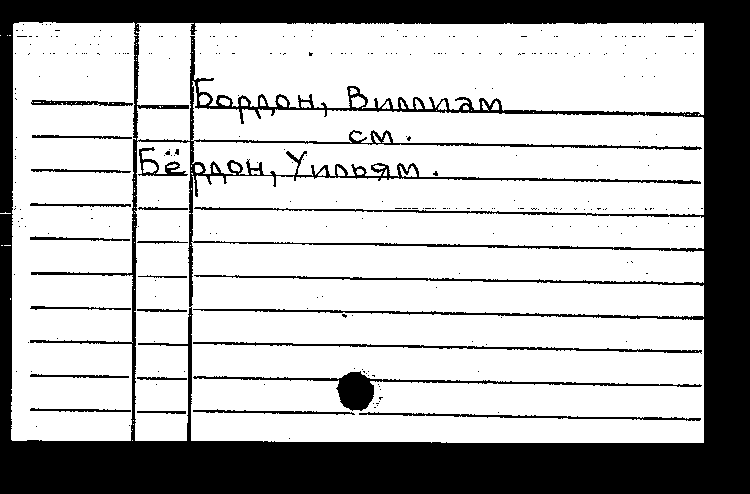 Бордон, Виллиам
см.
Бёрдон, Уильям.